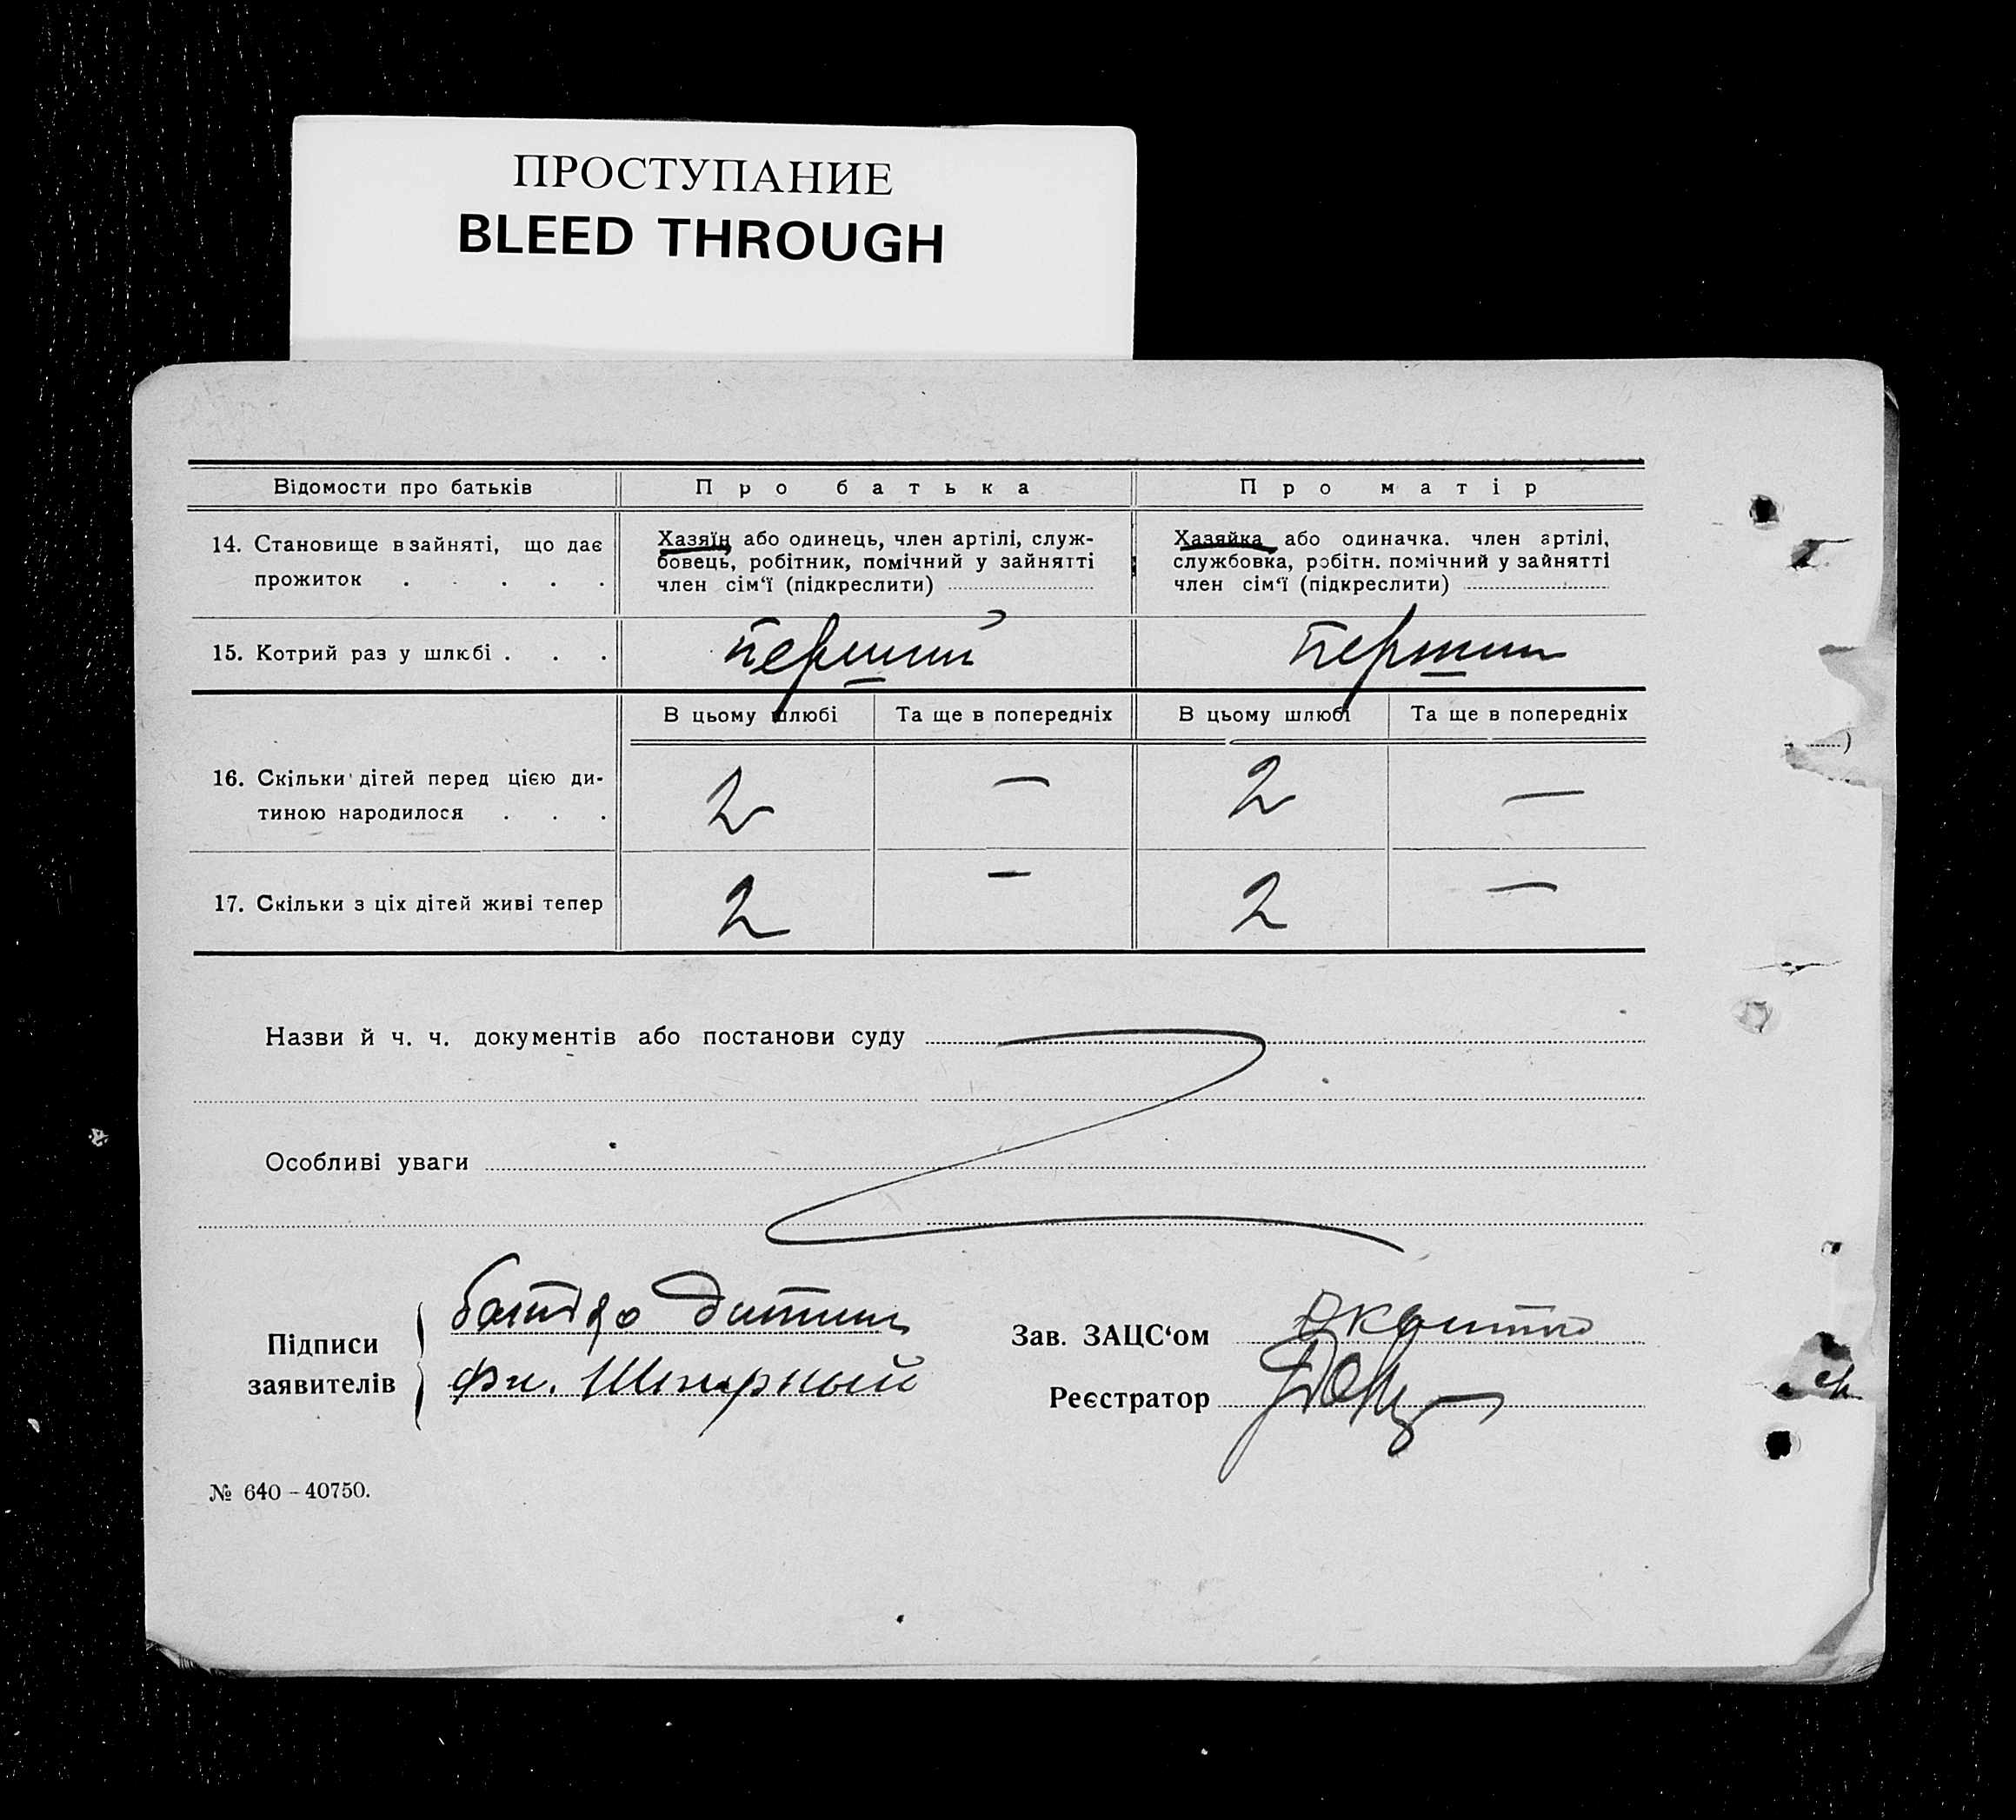 ПРОСТУПАНИЕ
BLEED THROUGH
Відомости про батьків
Про батька
Про матір
14. Становище в зайняті, що дає прожиток . . . . .
Хазяїн або одинець, член артілі, служ-
бовець, робітник, помічний у зайнятті
член сім'ї (підкреслити)
Хазяйка або одиначка. член артілі,
службовка, робітн. помічний у зайнятті
член сім'ї (підкреслити)
15. Котрий раз у шлюбі . . .
перший
перший
В цьому шлюбі
Та ще в попередніх
В цьому шлюбі
Та ще в попередніх
16. Скільки дітей перед цією ди-
тиною народилося . . .
2
—
2
—
17. Скільки з ціх дітей живі тепер
2
—
2
—
Назви й ч. ч. документів або постанови суду
Особливі уваги
Підписи
заявителів
батько дитини
Зав. ЗАЦС'ом
Реєстратор
№ 640 - 40750.